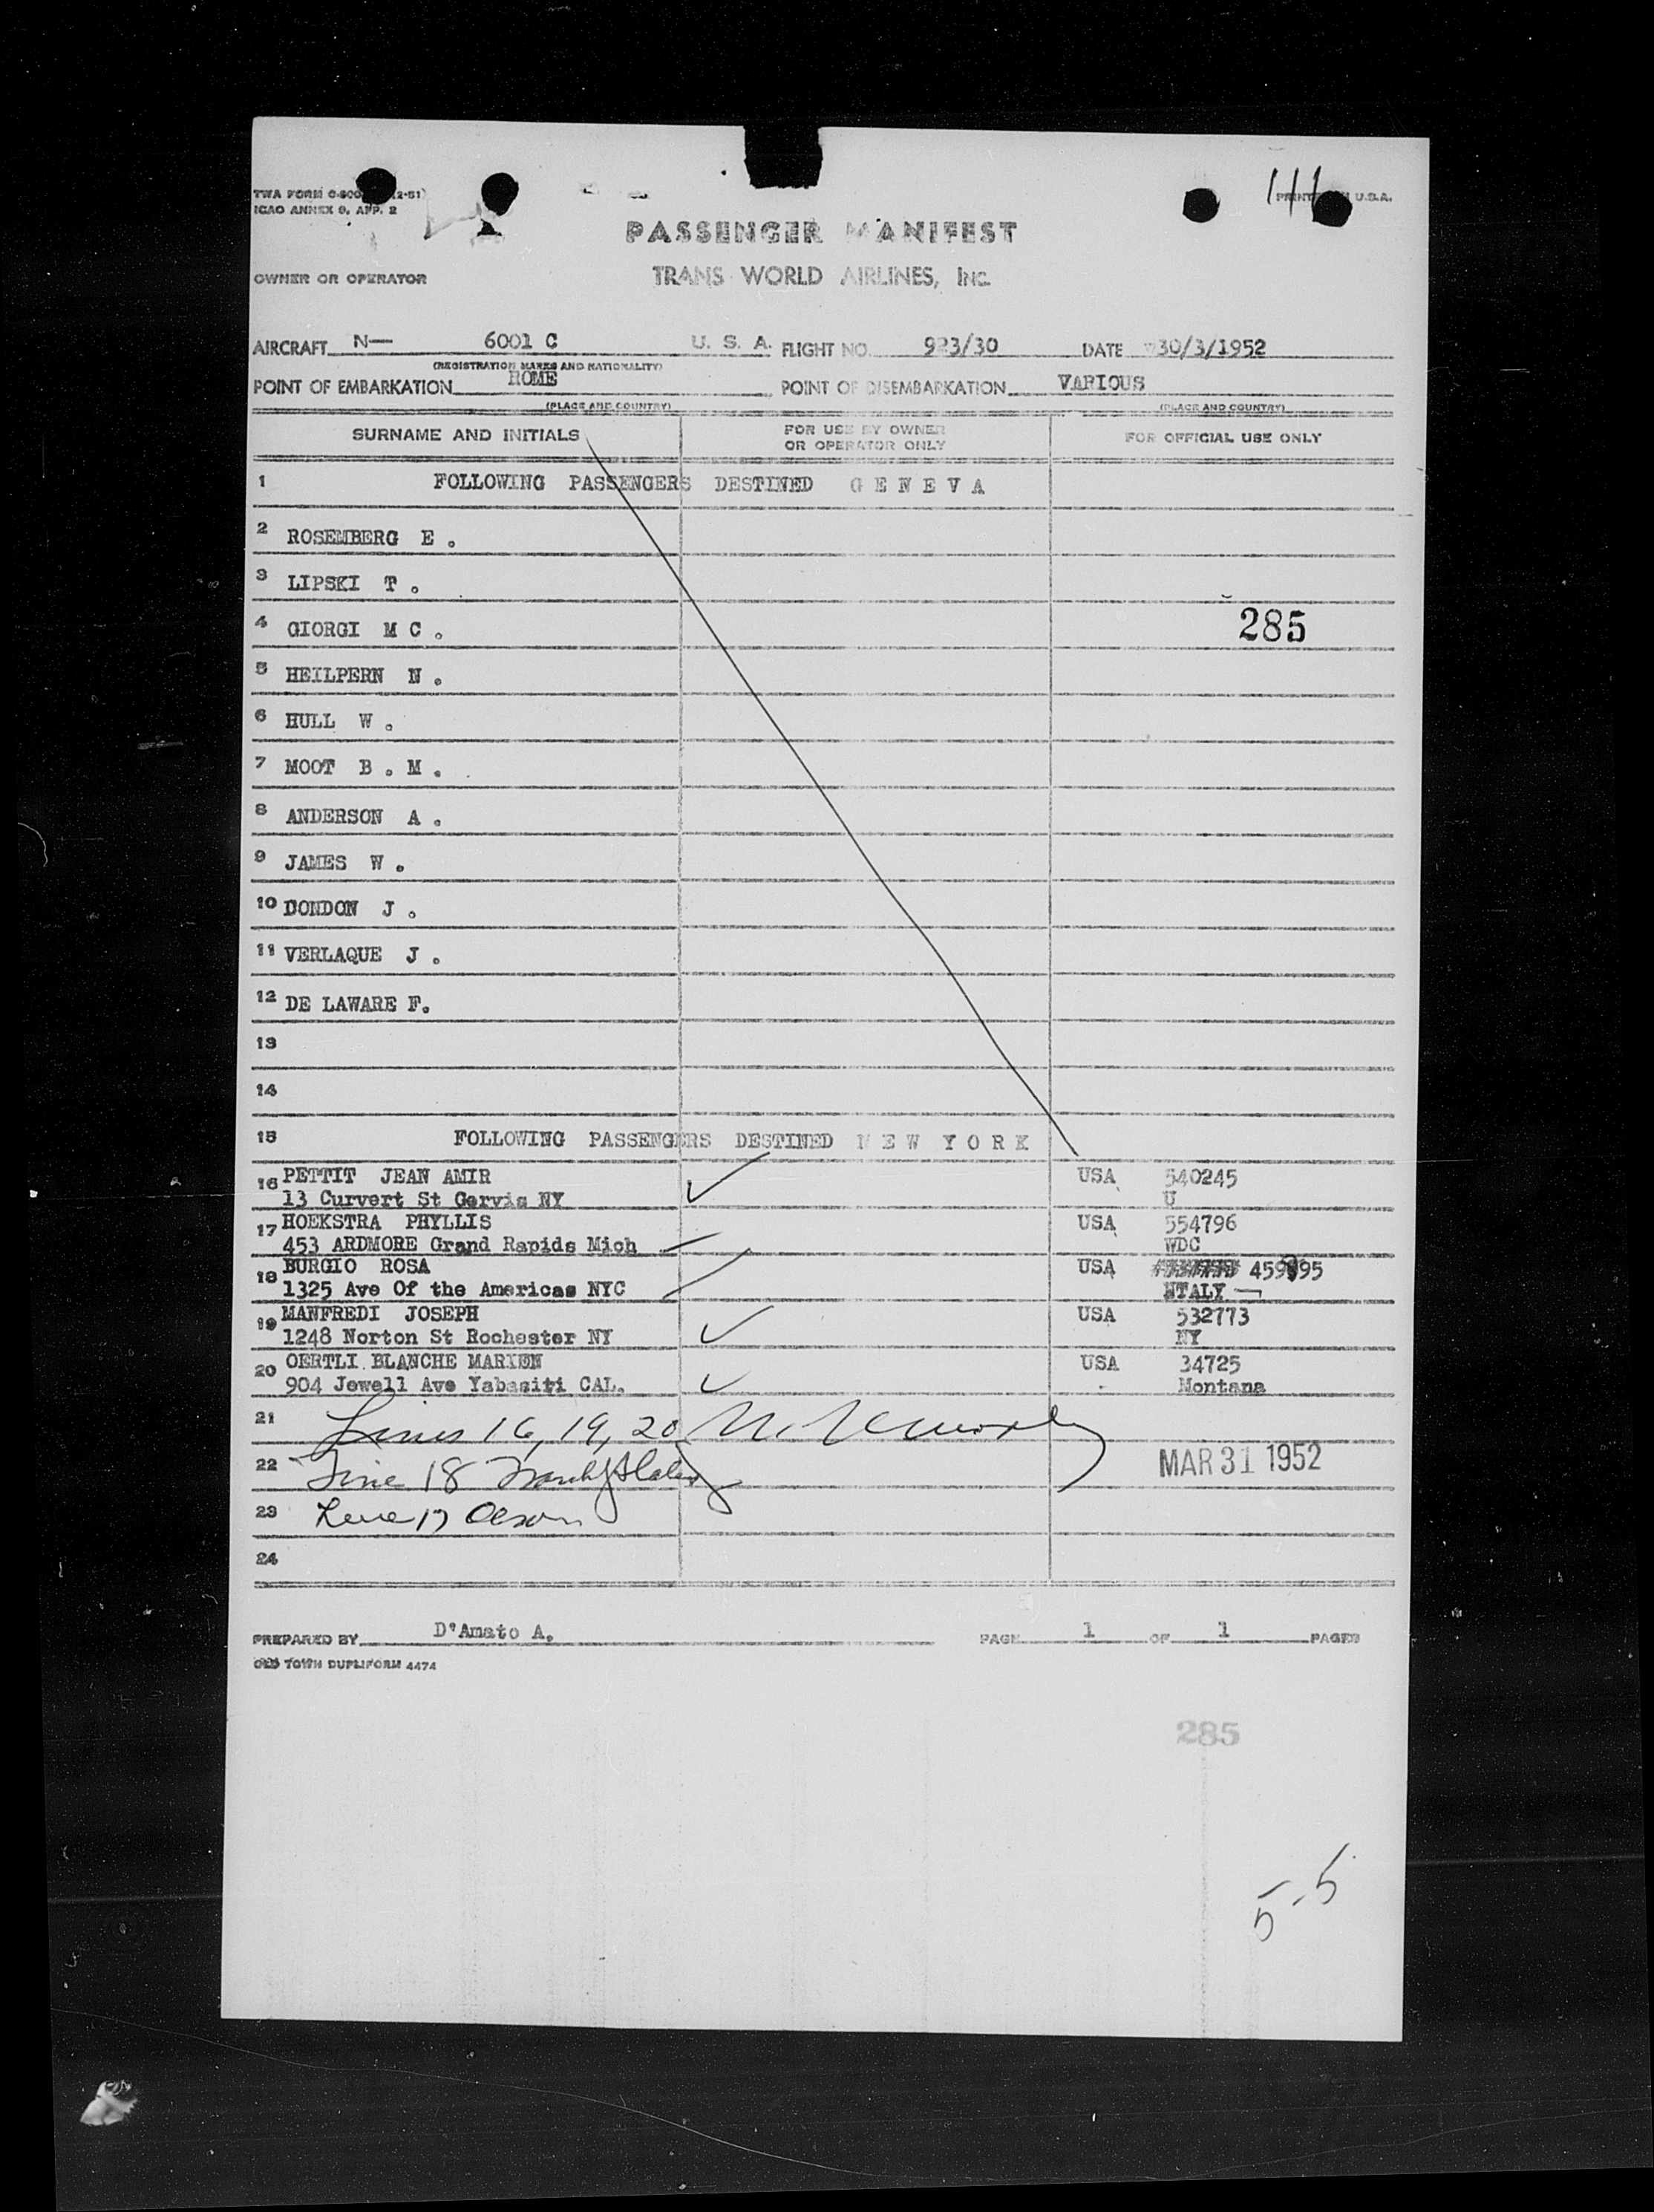 TWA FORM
ICAO ANNEX 9, APP. 2
116
U.S.A.
PASSENGER MANIFEST
OWNER OR OPERATOR
TRANS WORLD AIRLINES, INC.
AIRCRAFT N— 6001 C U. S. A. FLIGHT NO. 923/30 DATE 30/3/1952
(REGISTRATION MARKS AND NATIONALITY)
POINT OF EMBARKATION ROME POINT OF DISEMBARKATION VARIOUS
(PLACE AND COUNTRY) (PLACE AND COUNTRY)
SURNAME AND INITIALS FOR USE BY OWNER OR OPERATOR ONLY FOR OFFICIAL USE ONLY
1 FOLLOWING PASSENGERS DESTINED G E N E V A
2 ROSEMBERG E .
3 LIPSKI T .
4 GIORGI M C . 285
5 HEILPERN N .
6 HULL W .
7 MOOT B . M .
8 ANDERSON A .
9 JAMES W .
10 DONDON J .
11 VERLAQUE J .
12 DE LAWARE F.
13
14
15 FOLLOWING PASSENGERS DESTINED N E W Y O R K
16 PETTIT JEAN AMIR USA 540245
13 Curvert St Gervis NY U
17 HOEKSTRA PHYLLIS USA 554796
453 ARDMORE Grand Rapids Mich WDC
18 BURGIO ROSA USA
1325 Ave Of the Americas NYC ITALY
19 MANFREDI JOSEPH USA 532773
1248 Norton St Rochester NY NY
20 OERTLI BLANCHE MARION USA 34725
904 Jewell Ave Yabasiti CAL. Montana
21 Lines 16, 19, 20
22 Line 18 MAR 31 1952
23 Line 17 Olson
24
PREPARED BY D'Amato A, PAGE 1 OF 1 PAGES
OLD TOWN DUPLIFORM 4474
285
5-5